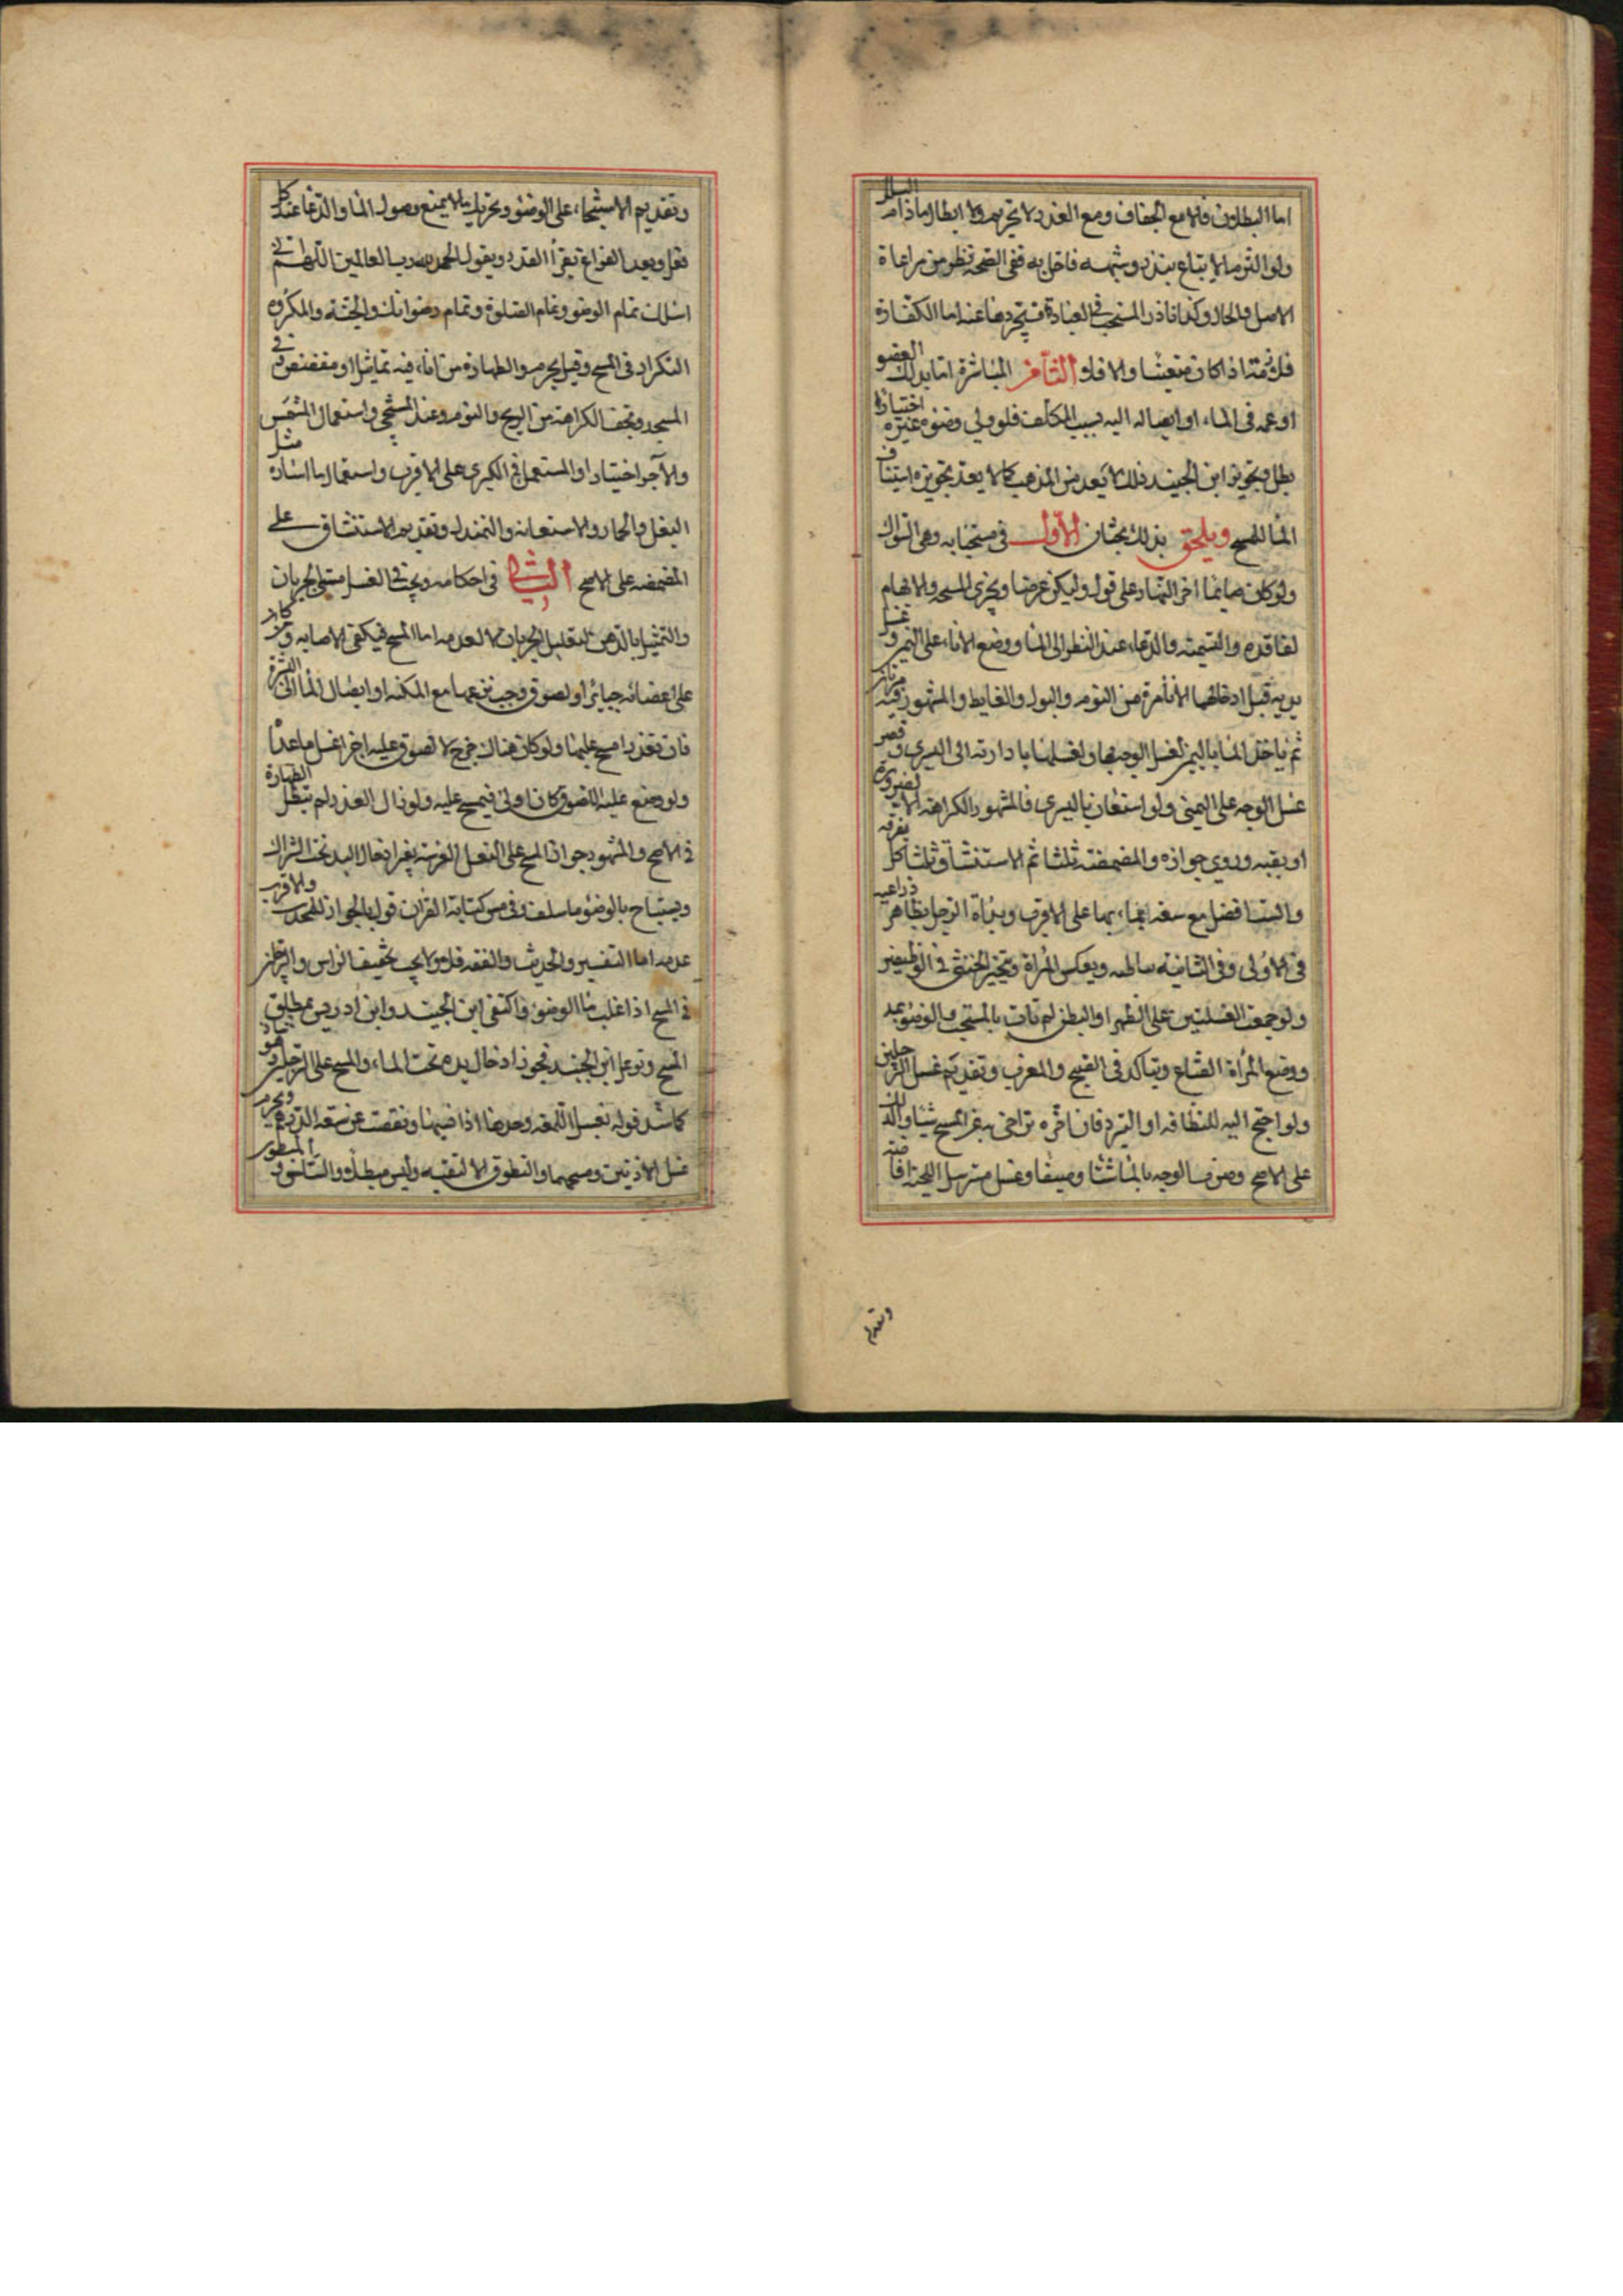 اما البطلان فلا مع الجفاف ومع العذر لا تحريم ولا ابطال ما دام البلل
ولو التزم الا يتابع بنذر وشبهه فاخل به ففي الصحة نظر من مراعاة
الاصل والحال وكذا ناذر المستحب في العبادة فيتجرد هنا عنه اما الكفارة
فلازمة اذا كان متعينا والا فلا الثامن المباشرة اما بذلك العضو
او غمسه في الماء او ايصاله اليه بسبب المكلف فلو ولي وضوءه غيره اختيارا
بطل وتجويز ابن الجنيد ذلك لا يعد من المذهب كما لا يعد تجويزه استيناف
الماء للمسح ويلحق بذلك بحثان الاول في مستحباته وهي السواك
ولو كان صايما اخر النهار على قول وليكن عرضا ويجزي المسبحة والابهام
لفاقده والتسمية والدعاء عند النظر الى الماء ووضع الاناء على اليمين وغسل
يديه قبل ادخالهما الاناء مرة من النوم والبول والغايط والمشهور فيه مرتان
ثم ياخذ الماء باليمين لغسل الوجه بها ولغسلها بادارته الى اليسرى وقصر
غسل الوجه على اليمنى ولو استعان باليسرى فالمشهور الكراهة الا لضرورة
او بقية وروي جوازه والمضمضة ثلثا ثم الاستنشاق ثلثا كل بغرفة
والست افضل مع سعة الماء بها على الاقرب وبداة الرجل بظاهر ذراعيه
في الاولى وفي الثانية بباطنه وبعكس المراة ويتخير الخنثى في الوظيفتين
ولو جمعت الغسلتين على الظهر او البطن لم تات بالمستحب والوضوء بمد
ووضع المراة القناع ويتاكد في الصبح والمغرب وتقديم غسل الرجلين
ولو احتج اليه للنظافة او التبرد فان اخره تراخى به عن المسح شيئا والدلك
على الاصح وضرب الوجه بالماء شتاء وصيفا وغسل مسترسل اللحية افاضة
وتقديم
وتقديم الاستنجاء على الوضوء وتحريك ما لا يمنع وصول الماء والدعاء عند كل
فعل وبعد الفراغ يقرأ القدر ويقول الحمد لله رب العالمين اللهم اني
اسئلك تمام الوضوء وتمام الصلوة وتمام رضوانك والجنة والمكروه
التكرار في المسح وقيل يحرم والطهارة من اناء فيه تماثيل او مفضض وفي
المسجد وتخف الكراهة من الريح والنوم وعند المستنجى واستعمال المشمس
والآجن اختيارا والمستعمل في الكبرى على الاقرب واستعمال ما اساره مثل
البغل والحمار والاستعانة والتمندل وتقديم الاستنشاق على
المضمضة على الاصح الثاني في احكامه ويجب في الغسل مسمى الجريان
والتمثيل بالدهن لتقليل الجريان لا لعدمه اما المسح فيكفي الاصابة ومن كان
على اعضائه جبائر او لصوق وجب نزعهما مع المكنة او ايصال الماء الى البشرة
فان تعذرا مسح عليهما ولو كان هناك جرح لا لصوق عليه اجزا غسل ما عداه
ولو وضع عليه اللصوق كان اولى فيمسح عليه ولو زال العذر لم تبطل الطهارة
في الاصح والمشهور جواز المسح على النعل العربية بغير ادخال اليد تحت الشراك
ويستباح بالوضوء ما سلف وفي مس كتابة القران قول بالجواز للمحدث والاقرب
عدمه اما التفسير والحديث والفقه فلا ولا يجب تخفيف الراس والرجلين
في المسح اذا غلب ماء الوضوء واكتفى ابن الجنيد وابن ادريس بمطلق
المسح وتوغل ابن الجنيد فجوز ادخال يده تحت الماء والمسح على الرجلين وهو شاذ
كما شذ قوله بغسل اللمعة وحدها اذا ضمها ونقصت عن سعة الدرهم ويحرم
غسل الاذنين ومسحهما والتطوق الا لتقية وليس مبطلا والسلس والمبطون